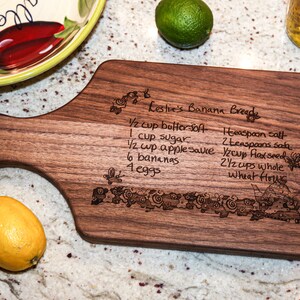 Kestie's Banana Bread
1/2 cup butter soft
1 cup sugar
1/2 cup applesauce
6 bananas
4 eggs
1 teaspoon salt
2 teaspoons soda
1/2 cup flax seed
2 1/2 cups whole
wheat flour